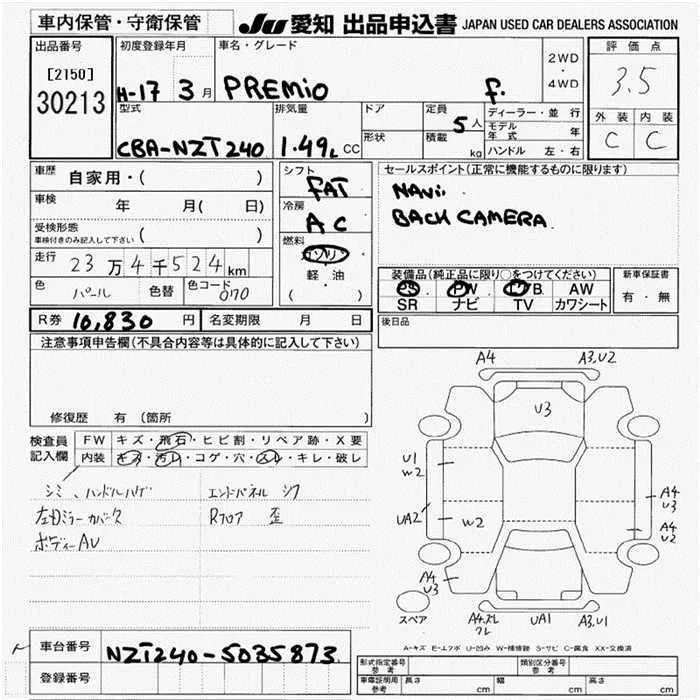 車内保管・守衛保管
JU 愛知 出品申込書 JAPAN USED CAR DEALERS ASSOCIATION
出品番号
[2150]
30213
初度登録年月
H-17 3月
車名・グレード
PREMiO F.
2WD
・
4WD
評価点
3.5
外装 内装
C C
型式
CBA-NZT240
排気量
1.49L CC
ドア
形状
定員
5人
積載
kg
ディーラー・並行
モデル年式 年
ハンドル 左・右
車歴
自家用・( )
車検
年 月( 日)
受検形態
車検付きのみ記入して下さい ( )
走行
23万4千524km
色 パール 色替 色コード 070
シフト
FAT
冷房
AC
燃料
ガソリン
軽・油
( )
セールスポイント(正常に機能するものに限ります)
NAVi
BACK CAMERA
装備品(純正品に限り○をつけてください)
PS PW AW
SR ナビ TV カワシート
新車保証書
有・無
R券 10,830円 名変期限 月 日
後日品
注意事項申告欄(不具合内容等は具体的に記入して下さい)
修復歴 有(箇所 )
検査員
記入欄
FW キズ・飛石・ヒビ割・リペア跡・X要
内装 キズ・汚レ・コゲ・穴・スレ・キレ・破レ
シミ、ハンドルハゲ エンドパネル シワ
左Dミラーカバーク Rフロア 歪
ボディーAU
A4 A3,U2
U3
U1
W2
UA2 W2
A4
U3
A4
U2
A4
U3
スペア
A4.スレ
ワレ
UA1 A3,U1
A-キズ E-エクボ U-凹み W-補修跡 S-サビ C-腐食 XX-交換済
車台番号 NZT240-5035873
登録番号
形式指定番号 類別区分番号
参考
車庫証明用 長さ cm 幅 cm 高さ cm
参考